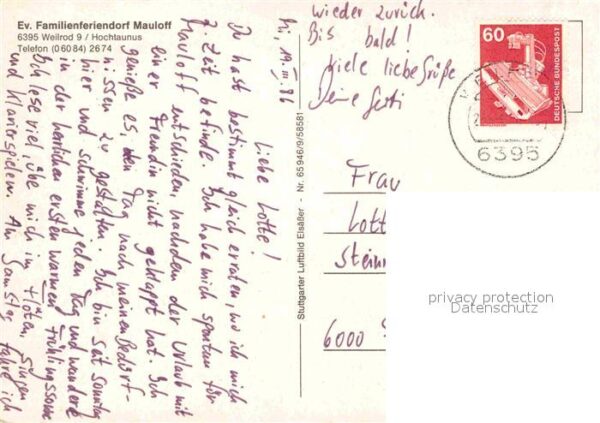 Ev. Familienferiendorf Mauloff
6395 Weilrod 9 / Hochtaunus
Telefon (0 60 84) 2674
Mi, 19.III.86
Liebe Lotte!
Du hast bestimmt gleich erraten, wo ich mich
z. Zeit befinde. Ich habe mich spontan für
Mauloff entschieden, nachdem der Urlaub mit
einer Freundin nicht geklappt hat. Ich
genieße es, den Tag nach meinen Bedürf-
nissen zu gestalten. Ich bin seit Sonntag
hier und schwimme jeden Tag und wandere
in der herrlichen ersten warmen Frühlingssonne
Ich lese viel, übe mich im Flöten, Singen
und Klavierspielen. Am Samstag fahre ich
wieder zurück.
Bis bald!
Viele liebe Grüße
Deine
Stuttgarter Luftbild Elsäßer - Nr. 65 946/9/58581
60
DEUTSCHE BUNDESPOST
6395
Frau
Lott
Stein
6000
privacy protection
Datenschutz